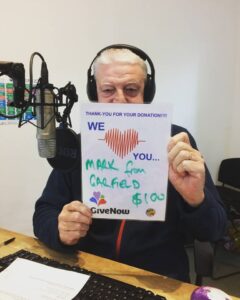 THANK YOU FOR YOUR DONATION!!!!
WE
YOU...
MARK from
GARFIELD
$100
GiveNow